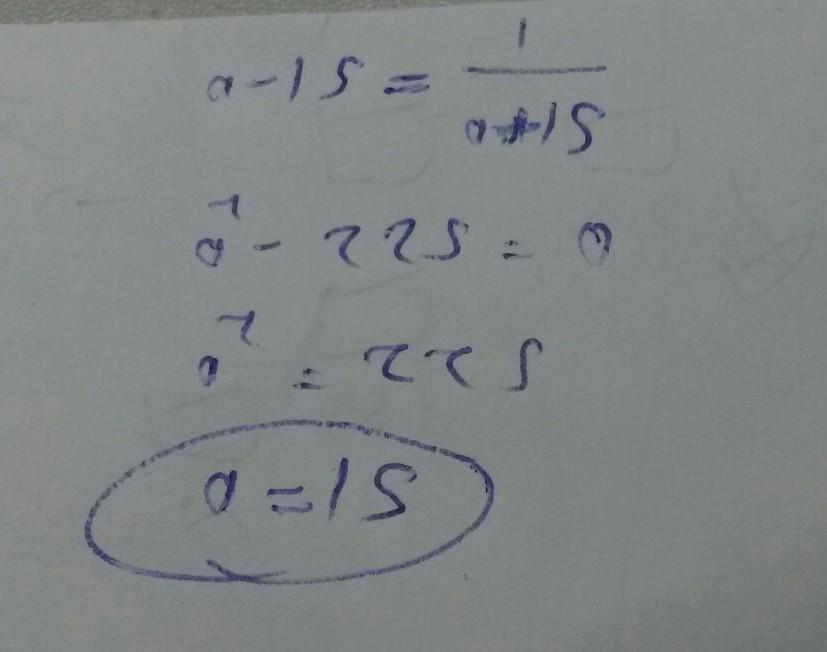 a-15 = 1/(a+15)
a² - 225 = 0
a² = 225
a = 15